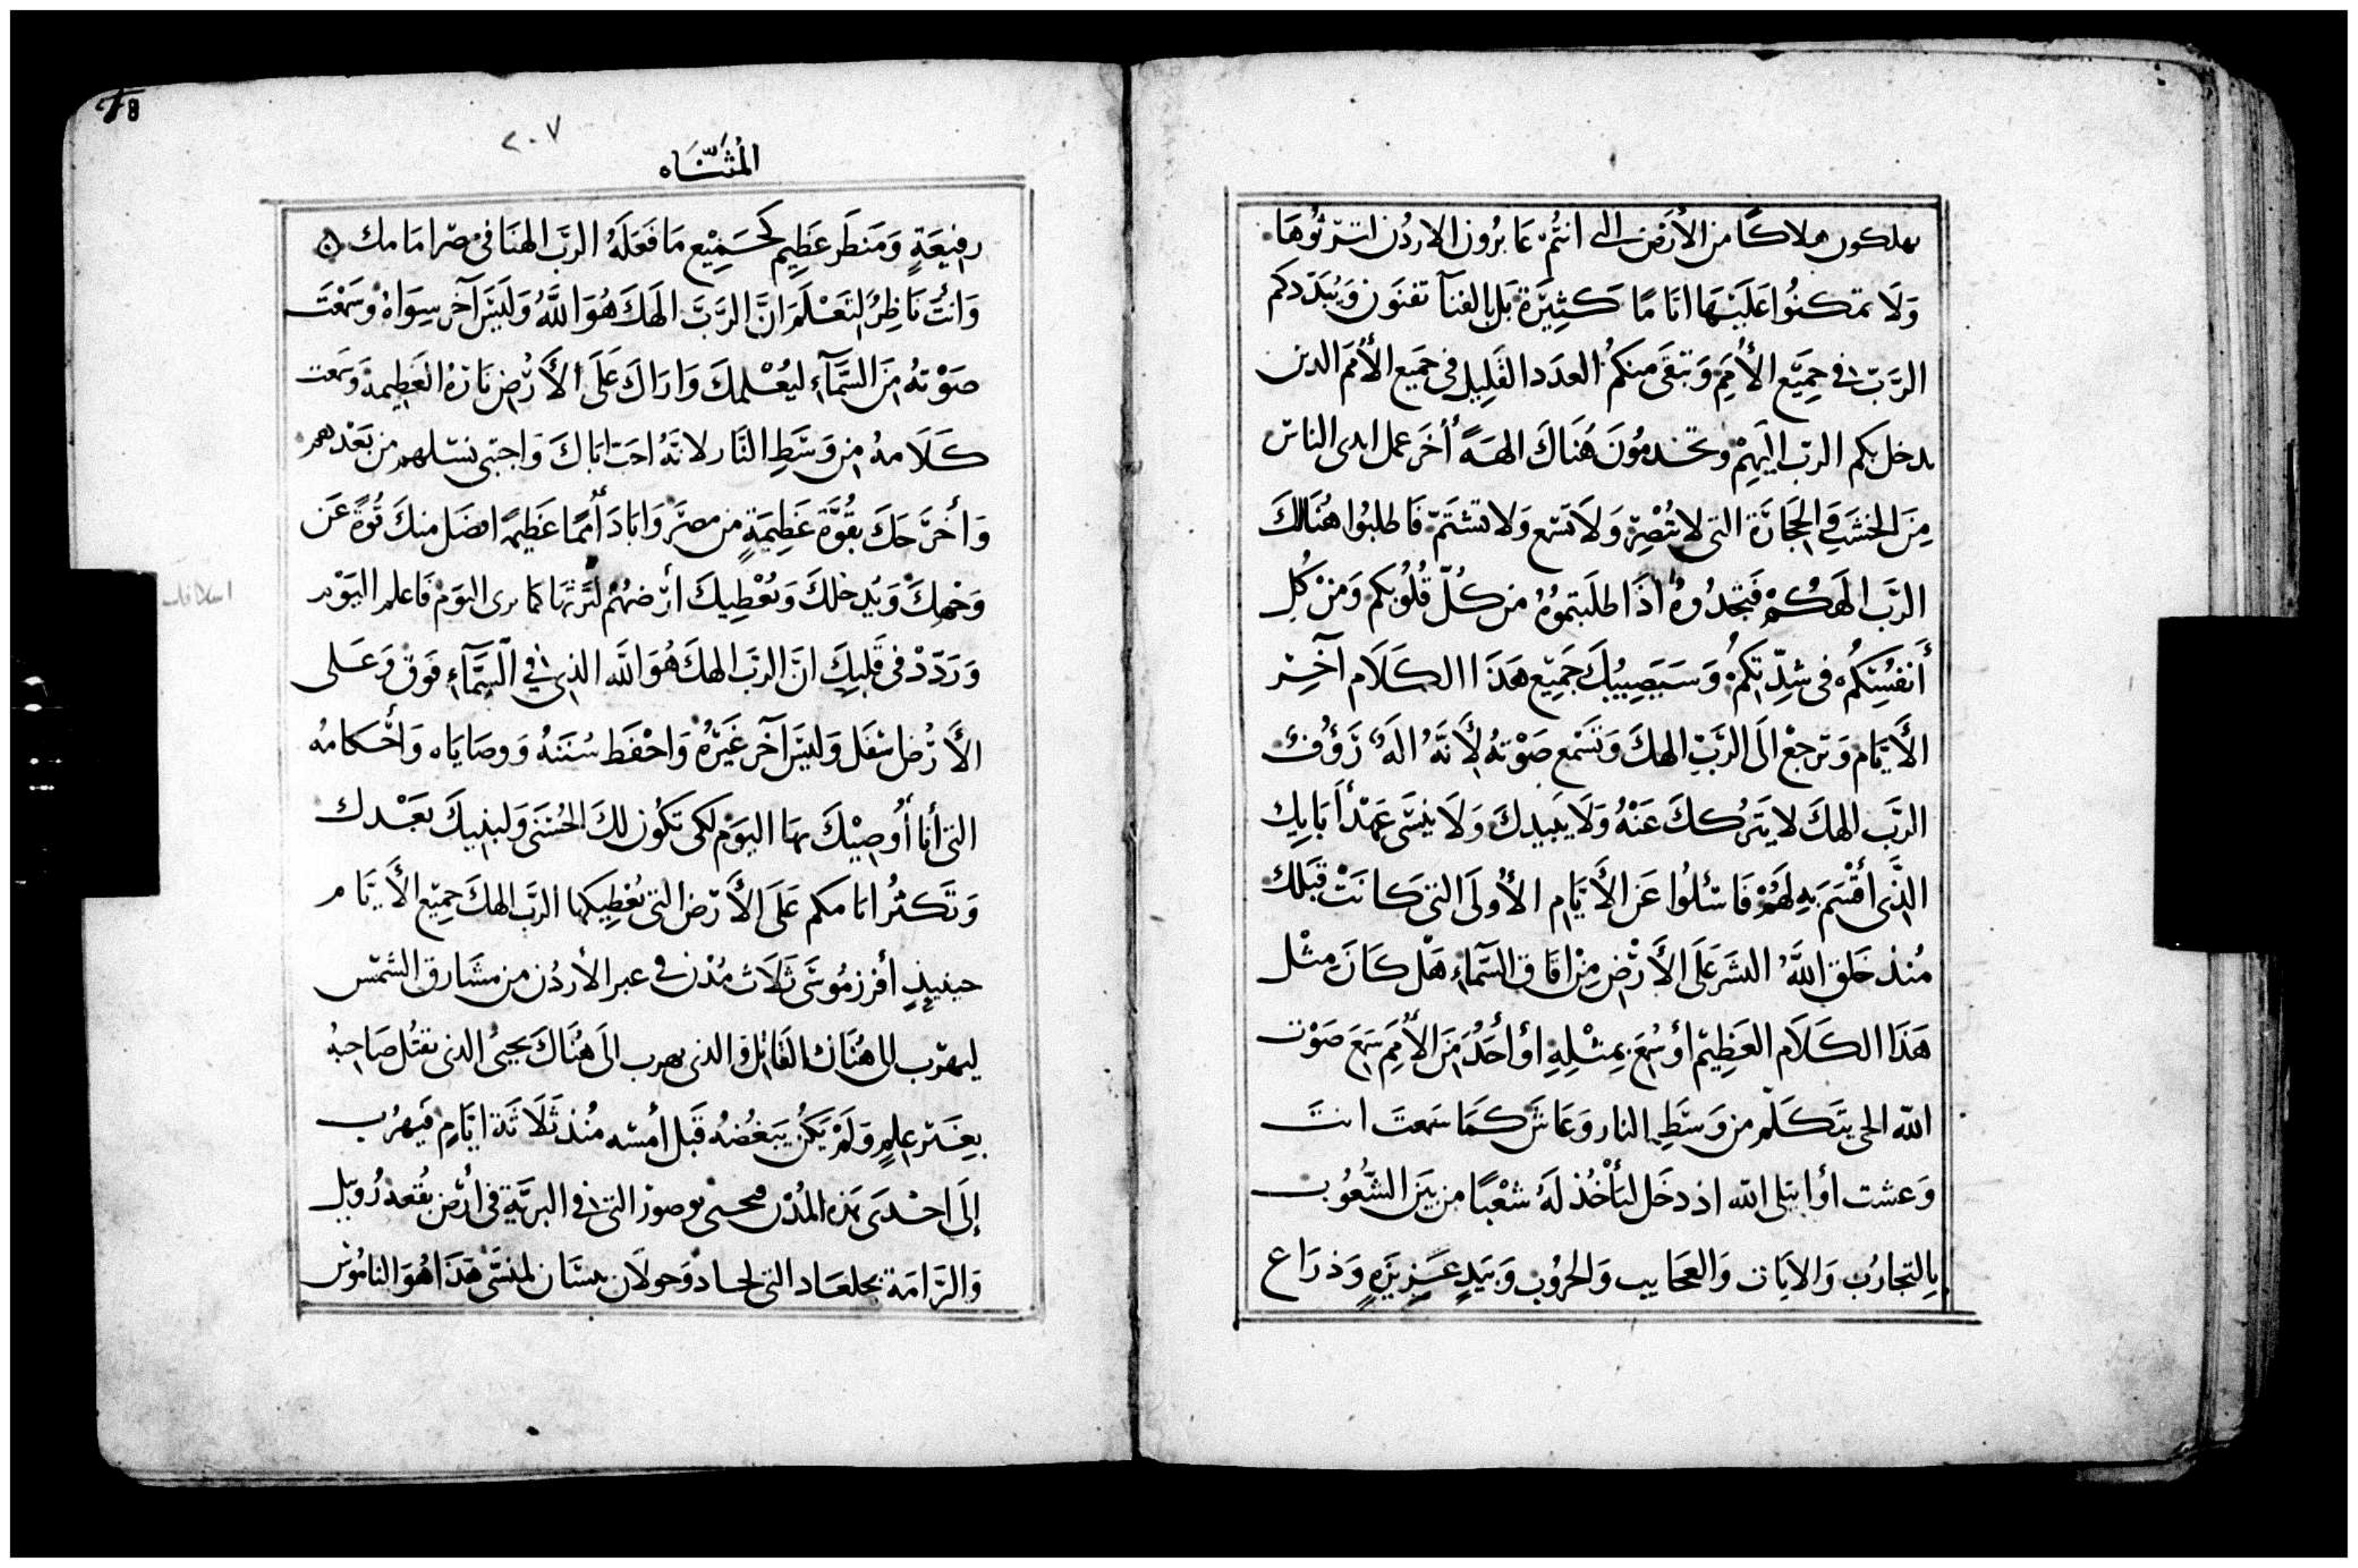 تهلكون هلاكًا من الأرض التي انتُم عَابرُون الاردُن لترثوُهَا
وَلَا تمكثُوا عَلَيْهَا ايامًا كَثِيرَة بَل بالفنآ تفنَون وَيُبَدّدكم
الرَّبّ في جَمِيْع الأُمَمِ وَتبقَى منكُم العدَد القَلِيل في جَميع الأُمَم الدين
يدخلكم الرب اليَهِمْ وتخدمُونَ هُنَاكَ الهَةً أُخَر عمل ايدى الناس
مِنَ الخشَب وَالحجَارَة التي لا تُبْصِر وَلَا تَسْمع وَلا تشتَمّ فَاطلبُوا هُنَالكَ
الرَّب الَهكُمْ فَتجدُوهُ اذَا طلَبتمُوهُ من كُلّ قُلُوبكم وَمنْ كُل
أَنفُسِكُم في شِدّتكمُ وَسَيَصِيبُكَ جَمِيْع هَذَا الكَلَام آخِر
الأَيَّام وَترجعْ الَى الرَّبّ الهكَ وَتَسْمع صَوْتهُ لِأَنَّهُ الَهٌ رَؤُفٌ
الرَّب الهكَ لا يَترُككَ عَنْهُ وَلَا يبَيدكَ وَلَا يَنسَى عَهْد أَبَايِك
الذَّى أَقْسَمَ بِهِ لَهُمْ فَاسْئلُوا عَن الأَيَّامِ الأُولَى التيَ كَانَتْ قَبَلك
مُنذ خَلق اللَّهُ البشَر عَلَى الأَرْضِ مِنْ افَاق السَّمَاءِ هَلْ كَانَ مثْل
هَذَا الكَلَام العَظِيْم أو سُمِعَ بِمثْلِهِ أو أَحَدٌ مَنَ الأُمَمِ سَمِعَ صَوْت
اللّه الحي يتَكَلَّم من وَسَطِ النار وَعَاشَ كَمَا سَمعتَ انتَ
وَعشت أو ابتلى اللّه اذ دخَل ليَأْخُذ لَهُ شعْبًا من بَيَن الشُّعُوب
بِالتجارُب وَالايَات وَالعجَايب وَالحرُوب وَبيَدٍ عَزِيزَةٍ وَذرَاع
٢٠٧
المُثنَّاه
رفيْعَةٍ وَمَنظَر عَظِيم كَجَمِيْع مَا فَعَلَهُ الرَّبّ الهنَا في مصْر امَامك
وَانْتَ نَاظِرٌ لتَعْلَمَ انَّ الرَّبَّ الَهكَ هُوَ اللَّهُ وَلَيْسَ آخَر سِوَاهُ وَسَمْعَت
صَوْتهُ مِنَ السَّمَآءِ ليعُلمكَ وَارَاكَ عَلَى الأَرْضِ نَارَهُ العَظِيمة وَسمعَت
كَلَامهُ مِن وَسَطِ النَّار لانهُ احَبّ ابَاكَ وَاجتبى نسْلهم من بَعْدهم
وَأَخرَجَكَ بقُوَّة عَظِيمَةٍ من مصَر وَابَادَ أُمَمًا عَظِيمَة افضَل منكَ قُوةً عَن
وَجْهكَ وَيُدخلكَ وَيُعْطيكَ أَرْضهُمْ لتَرثهَا كما يرى اليَوْمَ فَاعلم اليَوْم
وَرَدّدْ في قَلبِكَ انَّ الربَ الهكَ هُوَ اللَّه الذي في السَّمَآءِ فَوق وَعَلى
الأَرْض اسْفَل وَليْسَ آخَر غَيْرهُ وَاحْفَظ سُنَنهُ وَوصَايَاه وَأَحْكامهُ
التي أَنا أُوصِيْكَ بهَا اليَوْم لكى تكُون لكَ الحُسْنَى وَلبنيكَ بعَدك
وَتَكثُر ايامكم عَلَى الأَرْض التي يُعْطيكها الرَّب الهكَ جَمِيْع الأَيَّام
حينيذٍ أفرز مُوسَى ثَلَاث مُدُن في عبر الأردُن من مشَارق الشمْس
ليهرُب الى هُنَاك القَاتل وَالذي يهرب الَى هُنَاكَ يحيىُ الذي يقتُل صَاحبهُ
بِغَيْر عِلمٍ وَلَمْ يَكنُ يَبغُضهُ قَبل أَمسْه مُنذ ثَلَاثَة ايَّامِ فيَهرُب
إلَى احْدَى هَذه المُدُن فيحيى بوصور التي في البريَّة في أَرْض بُقعة رُوبيل
وَالرَّامَة بجلعَاد التي لجاد وَجولَان ببيسَان لمنسَّى هَذَا هُوَ النامُوس